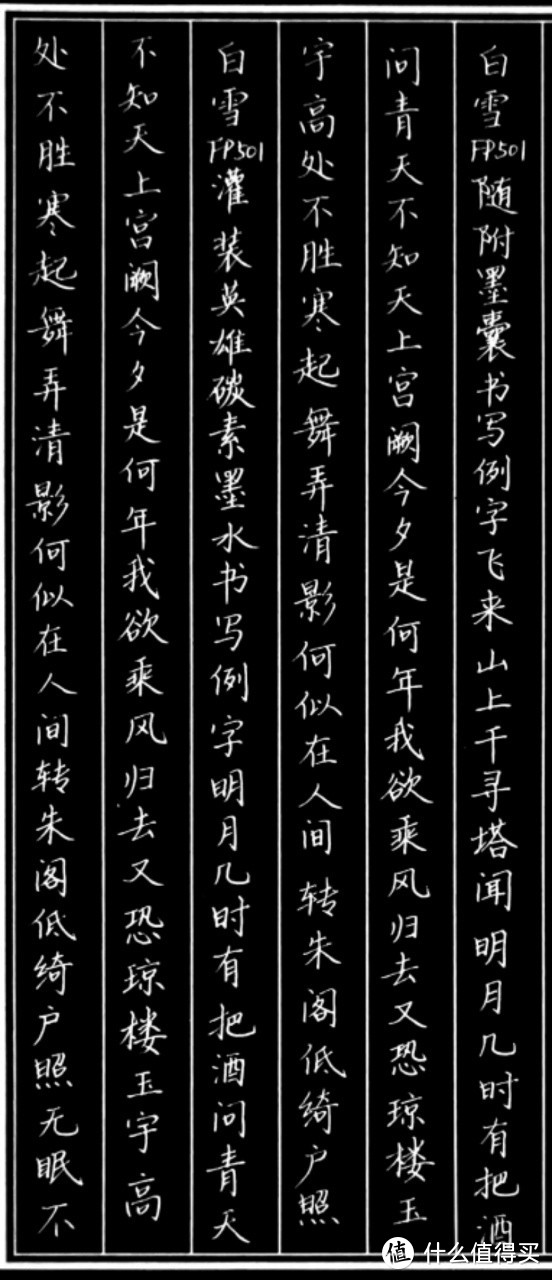 白雪FP501随附墨囊书写例字飞来山上千寻塔闻明月几时有把酒
问青天不知天上宫阙今夕是何年我欲乘风归去又恐琼楼玉
宇高处不胜寒起舞弄清影何似在人间转朱阁低绮户照
白雪FP501灌装英雄碳素墨水书写例字明月几时有把酒问青天
不知天上宫阙今夕是何年我欲乘风归去又恐琼楼玉宇高
处不胜寒起舞弄清影何似在人间转朱阁低绮户照无眠不
值 什么值得买